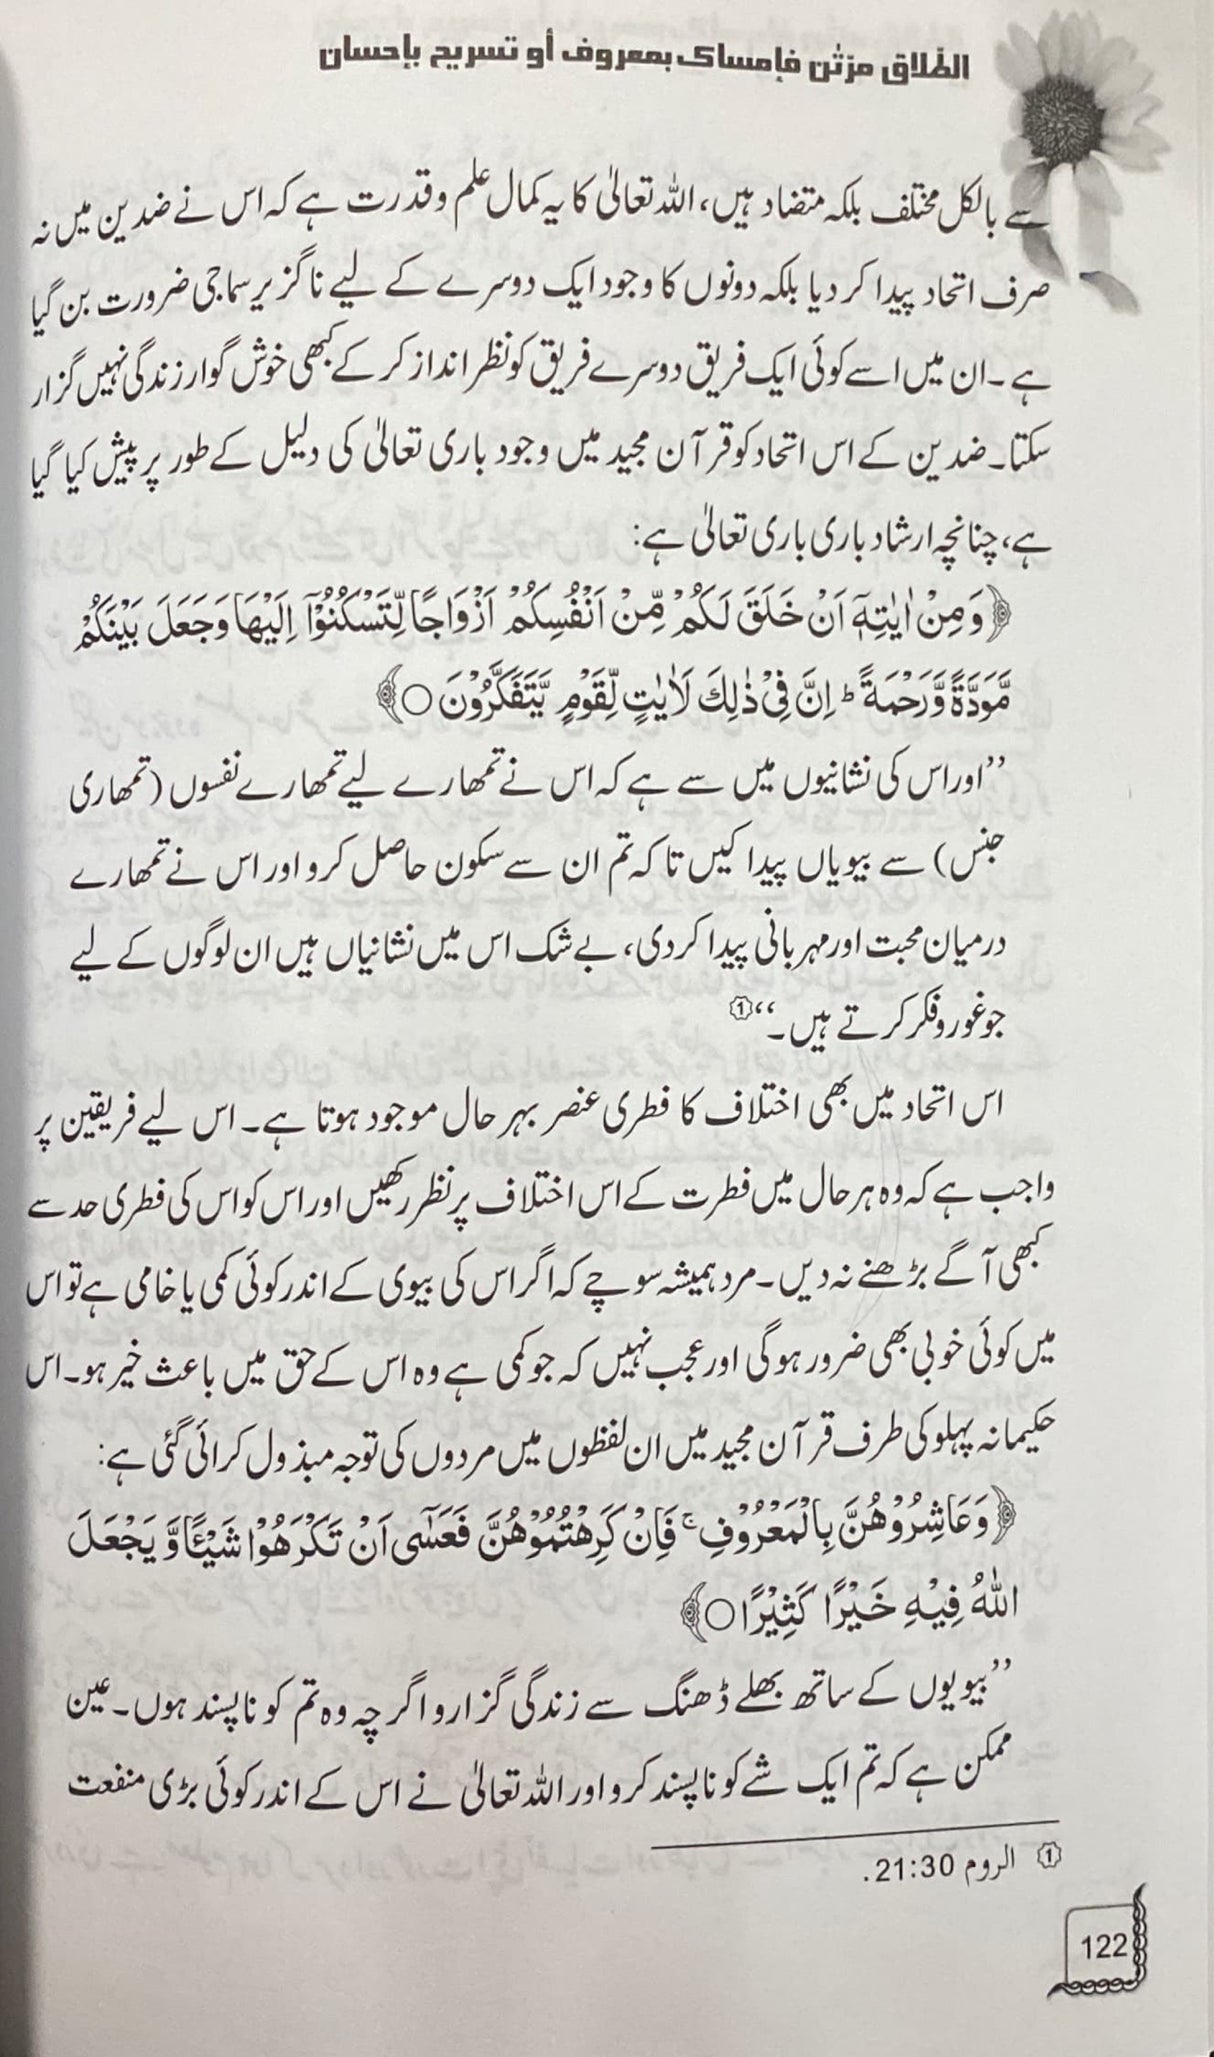 الطلاق مرتٰن فإمساك بمعروف أو تسريح بإحسان
سے بالکل مختلف بلکہ متضاد ہیں، اللہ تعالیٰ کا یہ کمال علم و قدرت ہے کہ اس نے ضدین میں نہ
صرف اتحاد پیدا کر دیا بلکہ دونوں کا وجود ایک دوسرے کے لیے ناگزیر سماجی ضرورت بن گیا
ہے۔ ان میں اسے کوئی ایک فریق دوسرے فریق کو نظر انداز کر کے کبھی خوش گوار زندگی نہیں گزار
سکتا۔ ضدین کے اس اتحاد کو قرآن مجید میں وجود باری تعالیٰ کی دلیل کے طور پر پیش کیا گیا
ہے، چنانچہ ارشاد باری باری تعالیٰ ہے:
﴿وَمِنْ اٰيٰتِهٖٓ اَنْ خَلَقَ لَكُمْ مِّنْ اَنْفُسِكُمْ اَزْوَاجًا لِّتَسْكُنُوْٓا اِلَيْهَا وَجَعَلَ بَيْنَكُمْ
مَّوَدَّةً وَّرَحْمَةً ؕ اِنَّ فِيْ ذٰلِكَ لَاٰيٰتٍ لِّقَوْمٍ يَّتَفَكَّرُوْنَ ○﴾
’’اور اس کی نشانیوں میں سے ہے کہ اس نے تمھارے لیے تمھارے نفسوں (تمھاری
جنس) سے بیویاں پیدا کیں تا کہ تم ان سے سکون حاصل کرو اور اس نے تمھارے
درمیان محبت اور مہربانی پیدا کر دی، بے شک اس میں نشانیاں ہیں ان لوگوں کے لیے
جو غور و فکر کرتے ہیں۔‘‘①
اس اتحاد میں بھی اختلاف کا فطری عنصر بہر حال موجود ہوتا ہے۔ اس لیے فریقین پر
واجب ہے کہ وہ ہر حال میں فطرت کے اس اختلاف پر نظر رکھیں اور اس کو اس کی فطری حد سے
کبھی آگے بڑھنے نہ دیں۔ مرد ہمیشہ سوچے کہ اگر اس کی بیوی کے اندر کوئی کمی یا خامی ہے تو اس
میں کوئی خوبی بھی ضرور ہوگی اور عجب نہیں کہ جو کمی ہے وہ اس کے حق میں باعث خیر ہو۔ اس
حکیمانہ پہلو کی طرف قرآن مجید میں ان لفظوں میں مردوں کی توجہ مبذول کرائی گئی ہے:
﴿وَعَاشِرُوْهُنَّ بِالْمَعْرُوْفِ ۚ فَاِنْ كَرِهْتُمُوْهُنَّ فَعَسٰٓى اَنْ تَكْرَهُوْا شَيْـًٔا وَّيَجْعَلَ
اللّٰهُ فِيْهِ خَيْرًا كَثِيْرًا ○﴾
’’بیویوں کے ساتھ بھلے ڈھنگ سے زندگی گزارو اگرچہ وہ تم کو ناپسند ہوں۔ عین
ممکن ہے کہ تم ایک شے کو ناپسند کرو اور اللہ تعالیٰ نے اس کے اندر کوئی بڑی منفعت
① الروم 21:30.
122